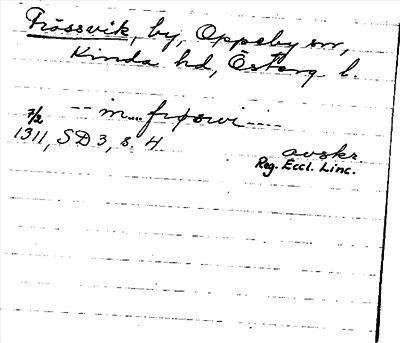 Frössvik, by, Oppeby sn,
Kinda hd, Österg. l.
-- in... frøswi ----
7/2
1311, SD 3, s. 4.
avskr.
Reg. Eccl. Linc.